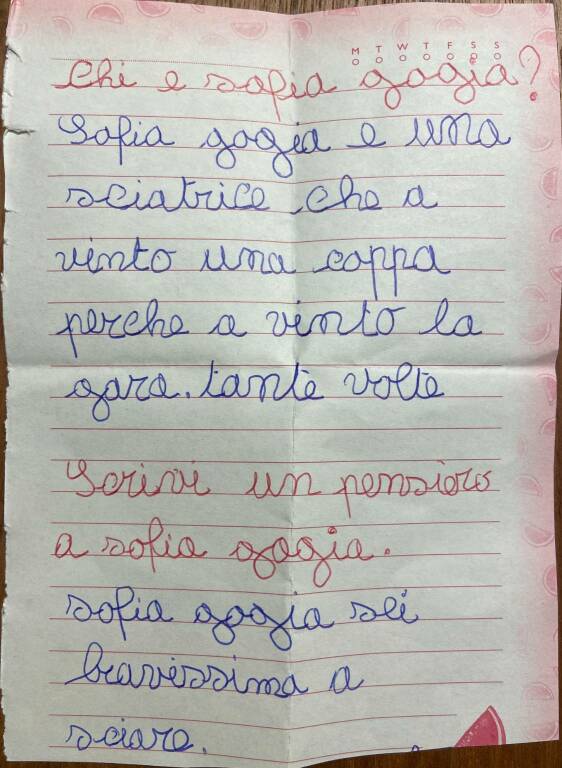 M T W T F S S
Chi e sofia gogia?
Sofia gogia e una
sciatrice che a
vinto una coppa
perche a vinto la
gara. tante volte
Scrivi un pensiero
a sofia gogia.
sofia gogia sei
bravissima a
sciare.